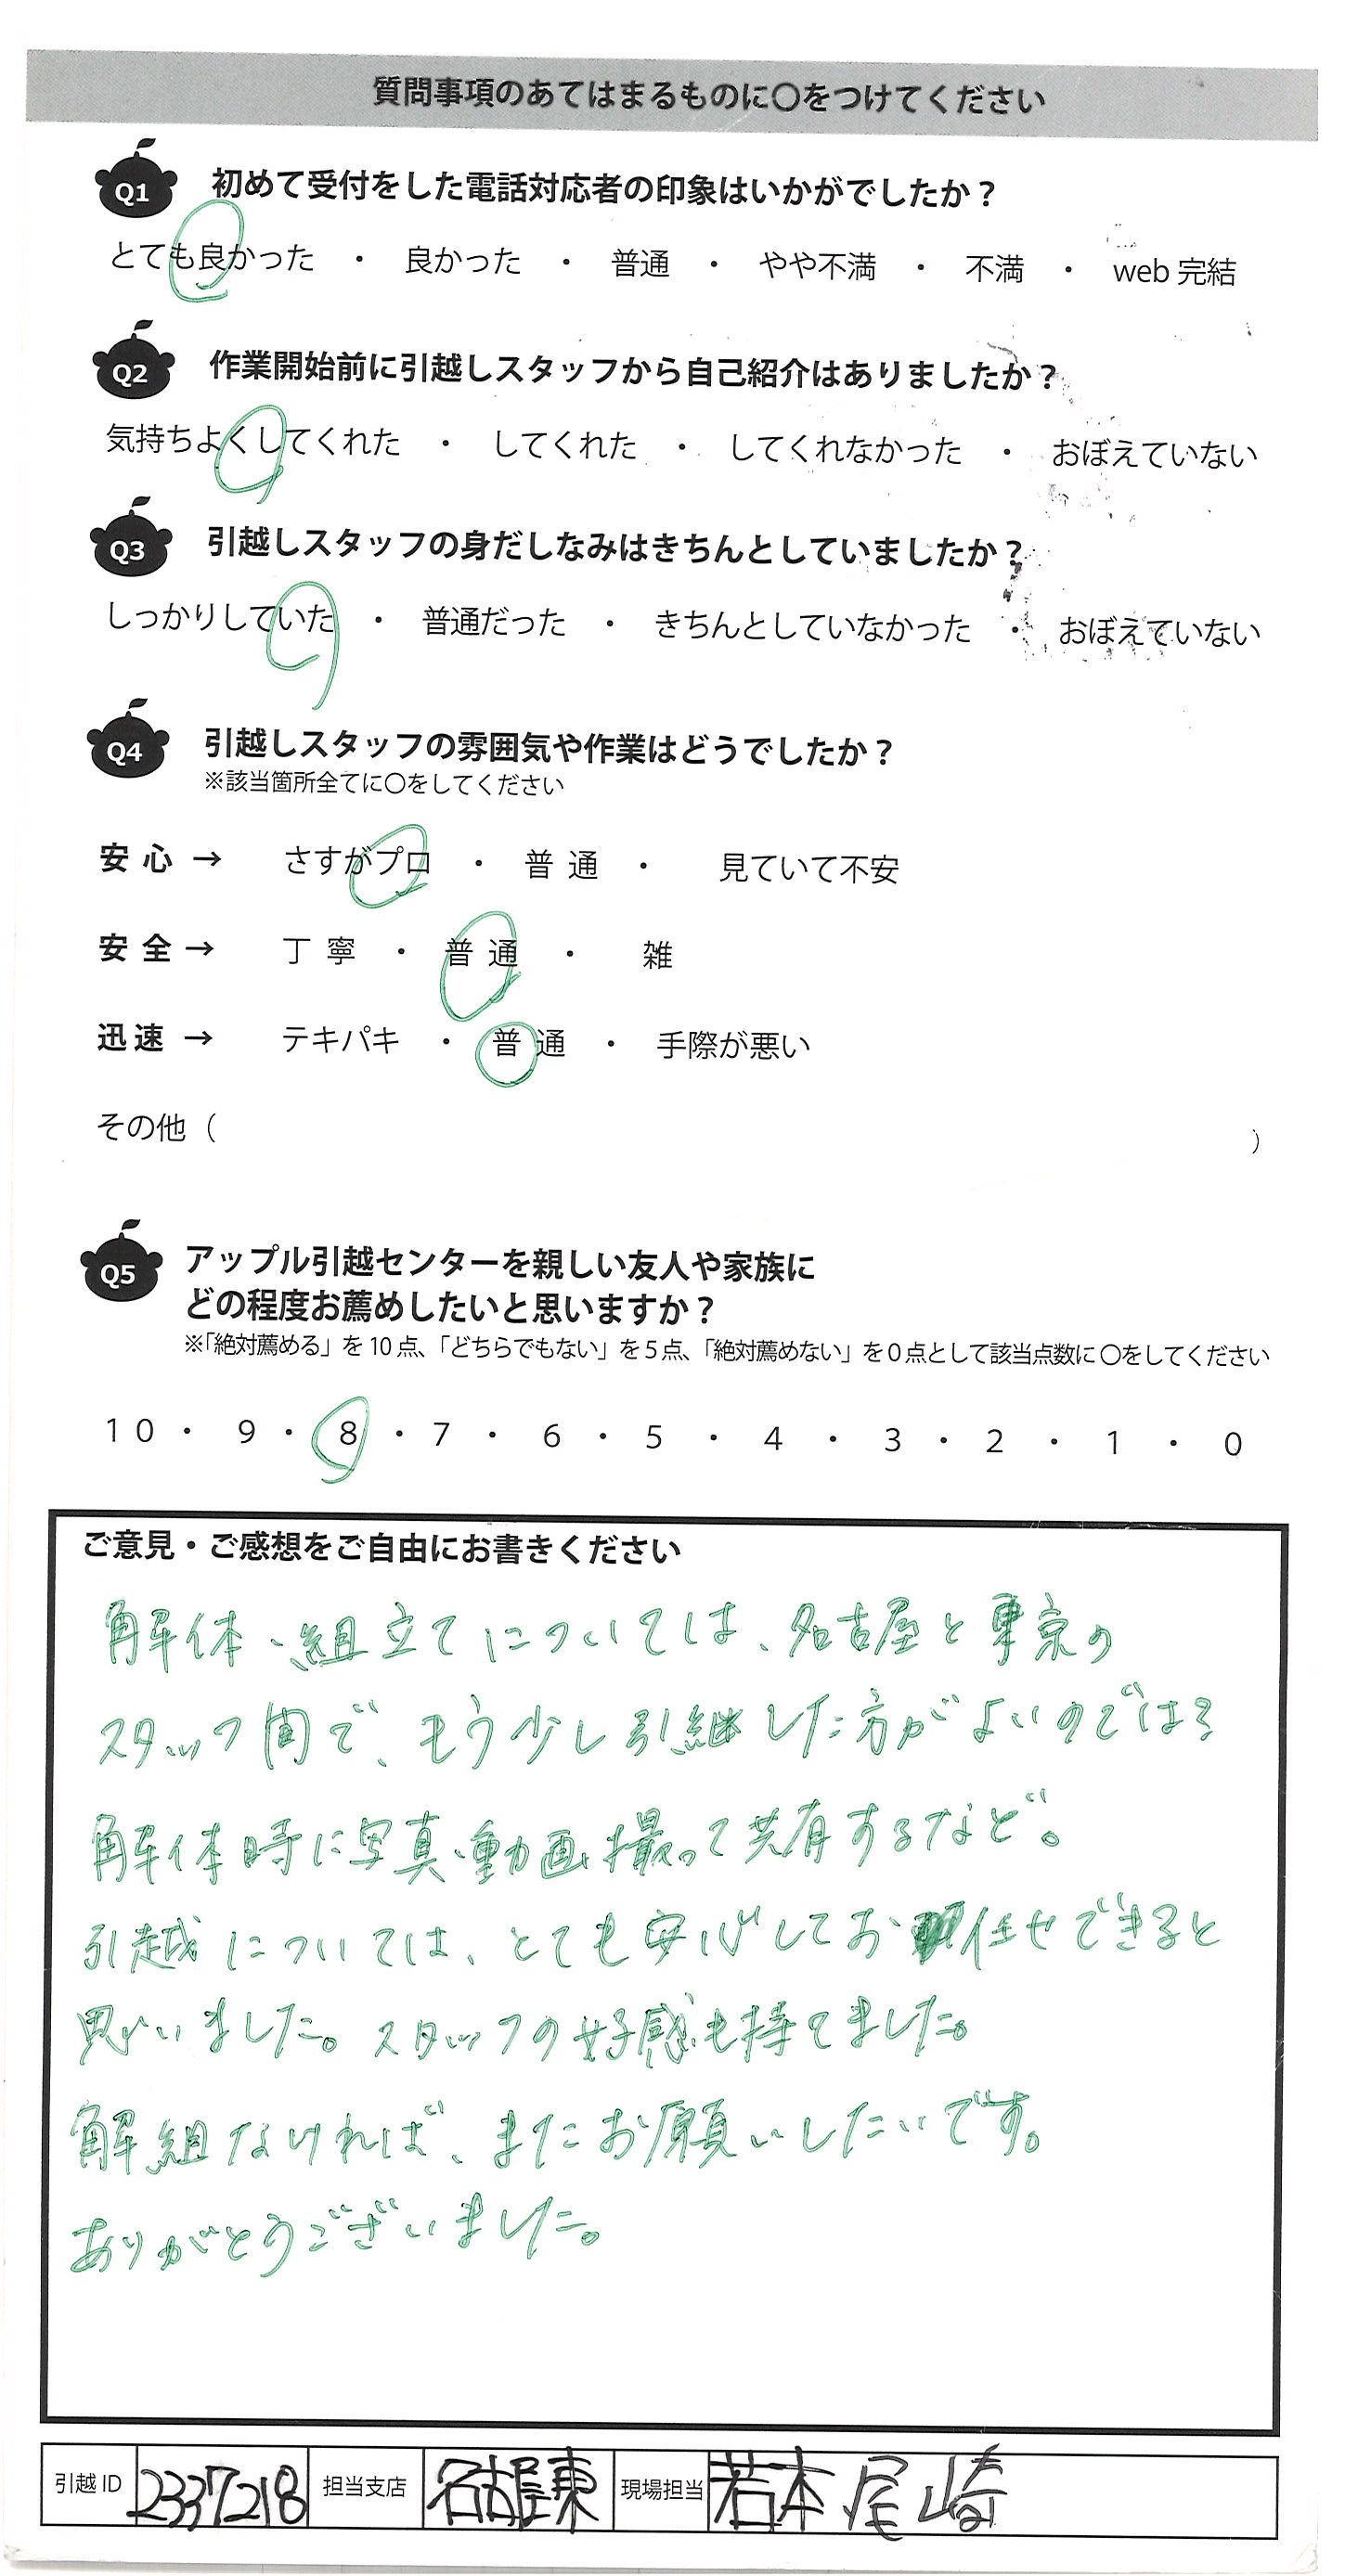 質問事項のあてはまるものに〇をつけてください
Q1 初めて受付をした電話対応者の印象はいかがでしたか？
とても良かった ・ 良かった ・ 普通 ・ やや不満 ・ 不満 ・ web 完結
Q2 作業開始前に引越しスタッフから自己紹介はありましたか？
気持ちよくしてくれた ・ してくれた ・ してくれなかった ・ おぼえていない
Q3 引越しスタッフの身だしなみはきちんとしていましたか？
しっかりしていた ・ 普通だった ・ きちんとしていなかった ・ おぼえていない
Q4 引越しスタッフの雰囲気や作業はどうでしたか？
※該当箇所全てに〇をしてください
安 心 → さすがプロ ・ 普 通 ・ 見ていて不安
安 全 → 丁 寧 ・ 普 通 ・ 雑
迅 速 → テキパキ ・ 普 通 ・ 手際が悪い
その他（ ）
Q5 アップル引越センターを親しい友人や家族に
どの程度お薦めしたいと思いますか？
※「絶対薦める」を 10 点、「どちらでもない」を 5 点、「絶対薦めない」を 0 点として該当点数に 〇をしてください
10 ・ 9 ・ 8 ・ 7 ・ 6 ・ 5 ・ 4 ・ 3 ・ 2 ・ 1 ・ 0
ご意見・ご感想をご自由にお書きください
解体、組立てについては、名古屋と東京の
スタッフ間で、もう少し引継した方がよいのでは?
解体時に写真、動画撮って共有するなど。
引越については、とても安心してお任せできると
思いました。スタッフの好感も持てました。
解組なければ、またお願いしたいです。
ありがとうございました。
引越 ID 2337218 担当支店 名古屋東 現場担当 若本 尾崎